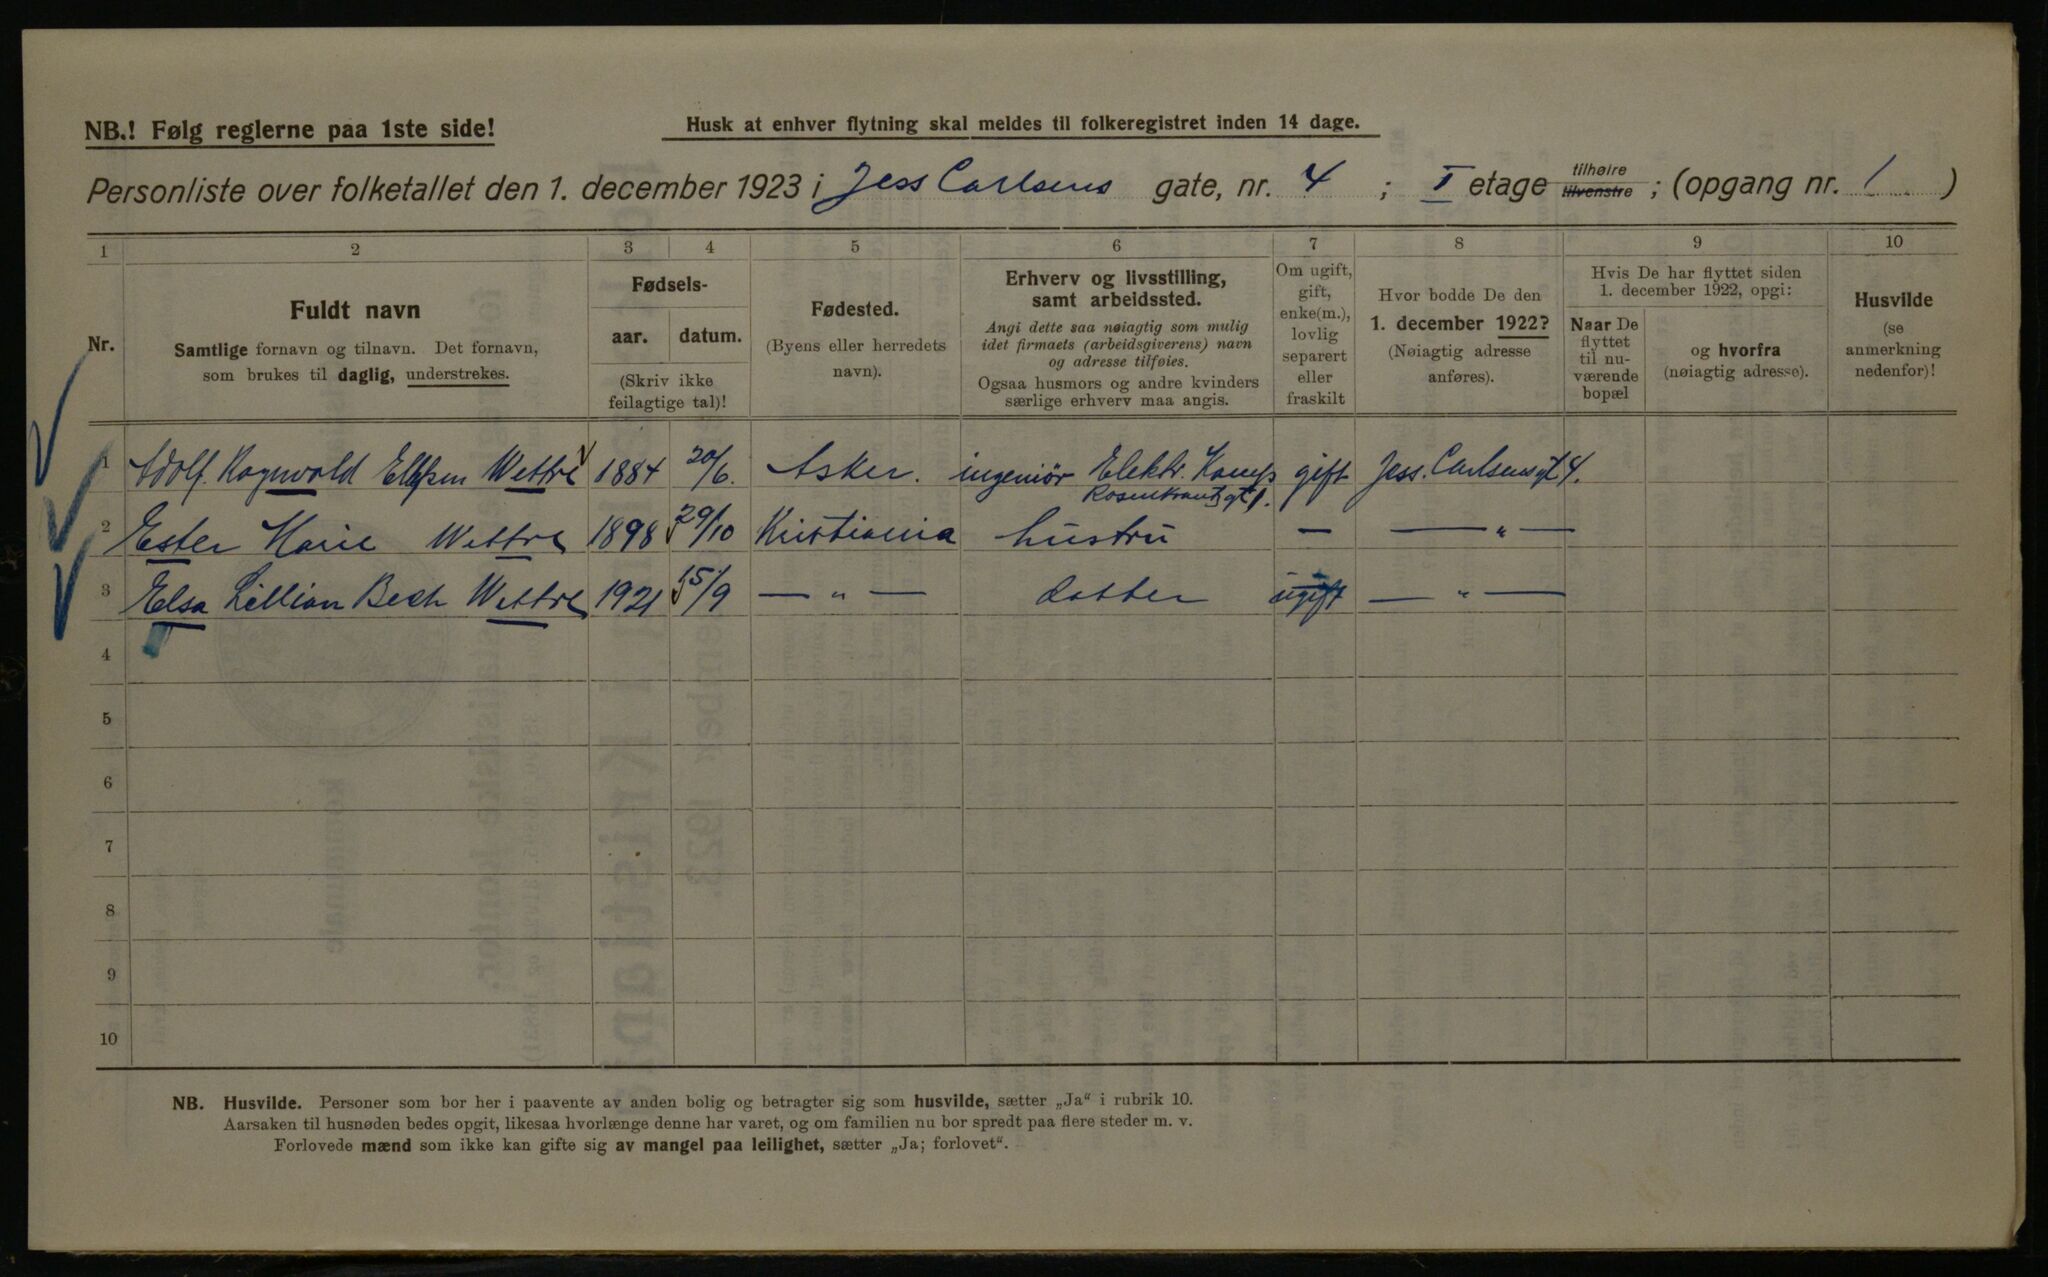 NB.! Følg reglerne paa 1ste side!
Husk at enhver flytning skal meldes til folkeregistret inden 14 dage.
Personliste over folketallet den 1. december 1923 i Jess Carlsens gate, nr. 4 ; I etage tilhøire tilvenstre ; (opgang nr. 1 )
1 2 3 4 5 6 7 8 9 10
Nr.
Fuldt navn
Samtlige fornavn og tilnavn. Det fornavn,
som brukes til daglig, understrekes.
Fødsels-
aar. datum.
(Skriv ikke
feilagtige tal)!
Fødested.
(Byens eller herredets
navn).
Erhverv og livsstilling,
samt arbeidssted.
Angi dette saa nøiagtig som mulig
idet firmaets (arbeidsgiverens) navn
og adresse tilføies.
Ogsaa husmors og andre kvinders
særlige erhverv maa angis.
Om ugift,
gift,
enke(m.),
lovlig
separert
eller
fraskilt
Hvor bodde De den
1. december 1922?
(Nøiagtig adresse
anføres).
Hvis De har flyttet siden
1. december 1922, opgi:
Naar De
flyttet
til nu-
værende
bopæl
og hvorfra
(nøiagtig adresse).
Husvilde
(se
anmerkning
nedenfor)!
1 Adolf Ragnvald Wettre 1884 20/6. Asker. ingeniør Elektr. gift Jess. Carlsensgt 4.
Rosenkrantzgt 1.
2 Ester Marie Wettre 1898 29/10 Kristiania hustru — — " —
3 Elsa Lillian Bech Wettre 1921 15/9 — " — datter ugift — " —
4
5
6
7
8
9
10
NB. Husvilde. Personer som bor her i paavente av anden bolig og betragter sig som husvilde, sætter „Ja" i rubrik 10.
Aarsaken til husnøden bedes opgit, likesaa hvorlænge denne har varet, og om familien nu bor spredt paa flere steder m. v.
Forlovede mænd som ikke kan gifte sig av mangel paa leilighet, sætter „Ja; forlovet".